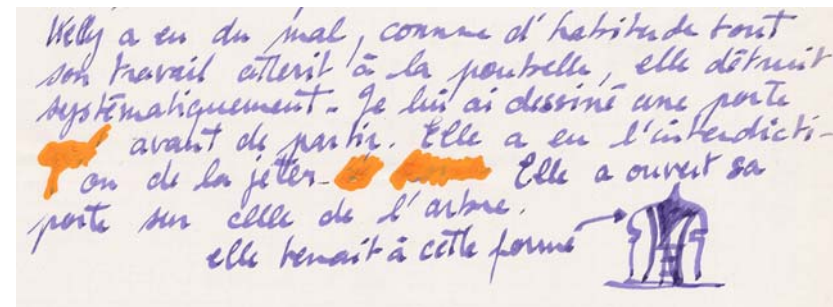 Welly a eu du mal, comme d'habitude tout
son travail atterit à la poubelle, elle détruit
systématiquement. Je lui ai dessiné une porte
avant de partir. Elle a eu l'interdicti-
on de la jeter. Elle a ouvert sa
porte sur celle de l'arbre.
elle tenait à cette forme